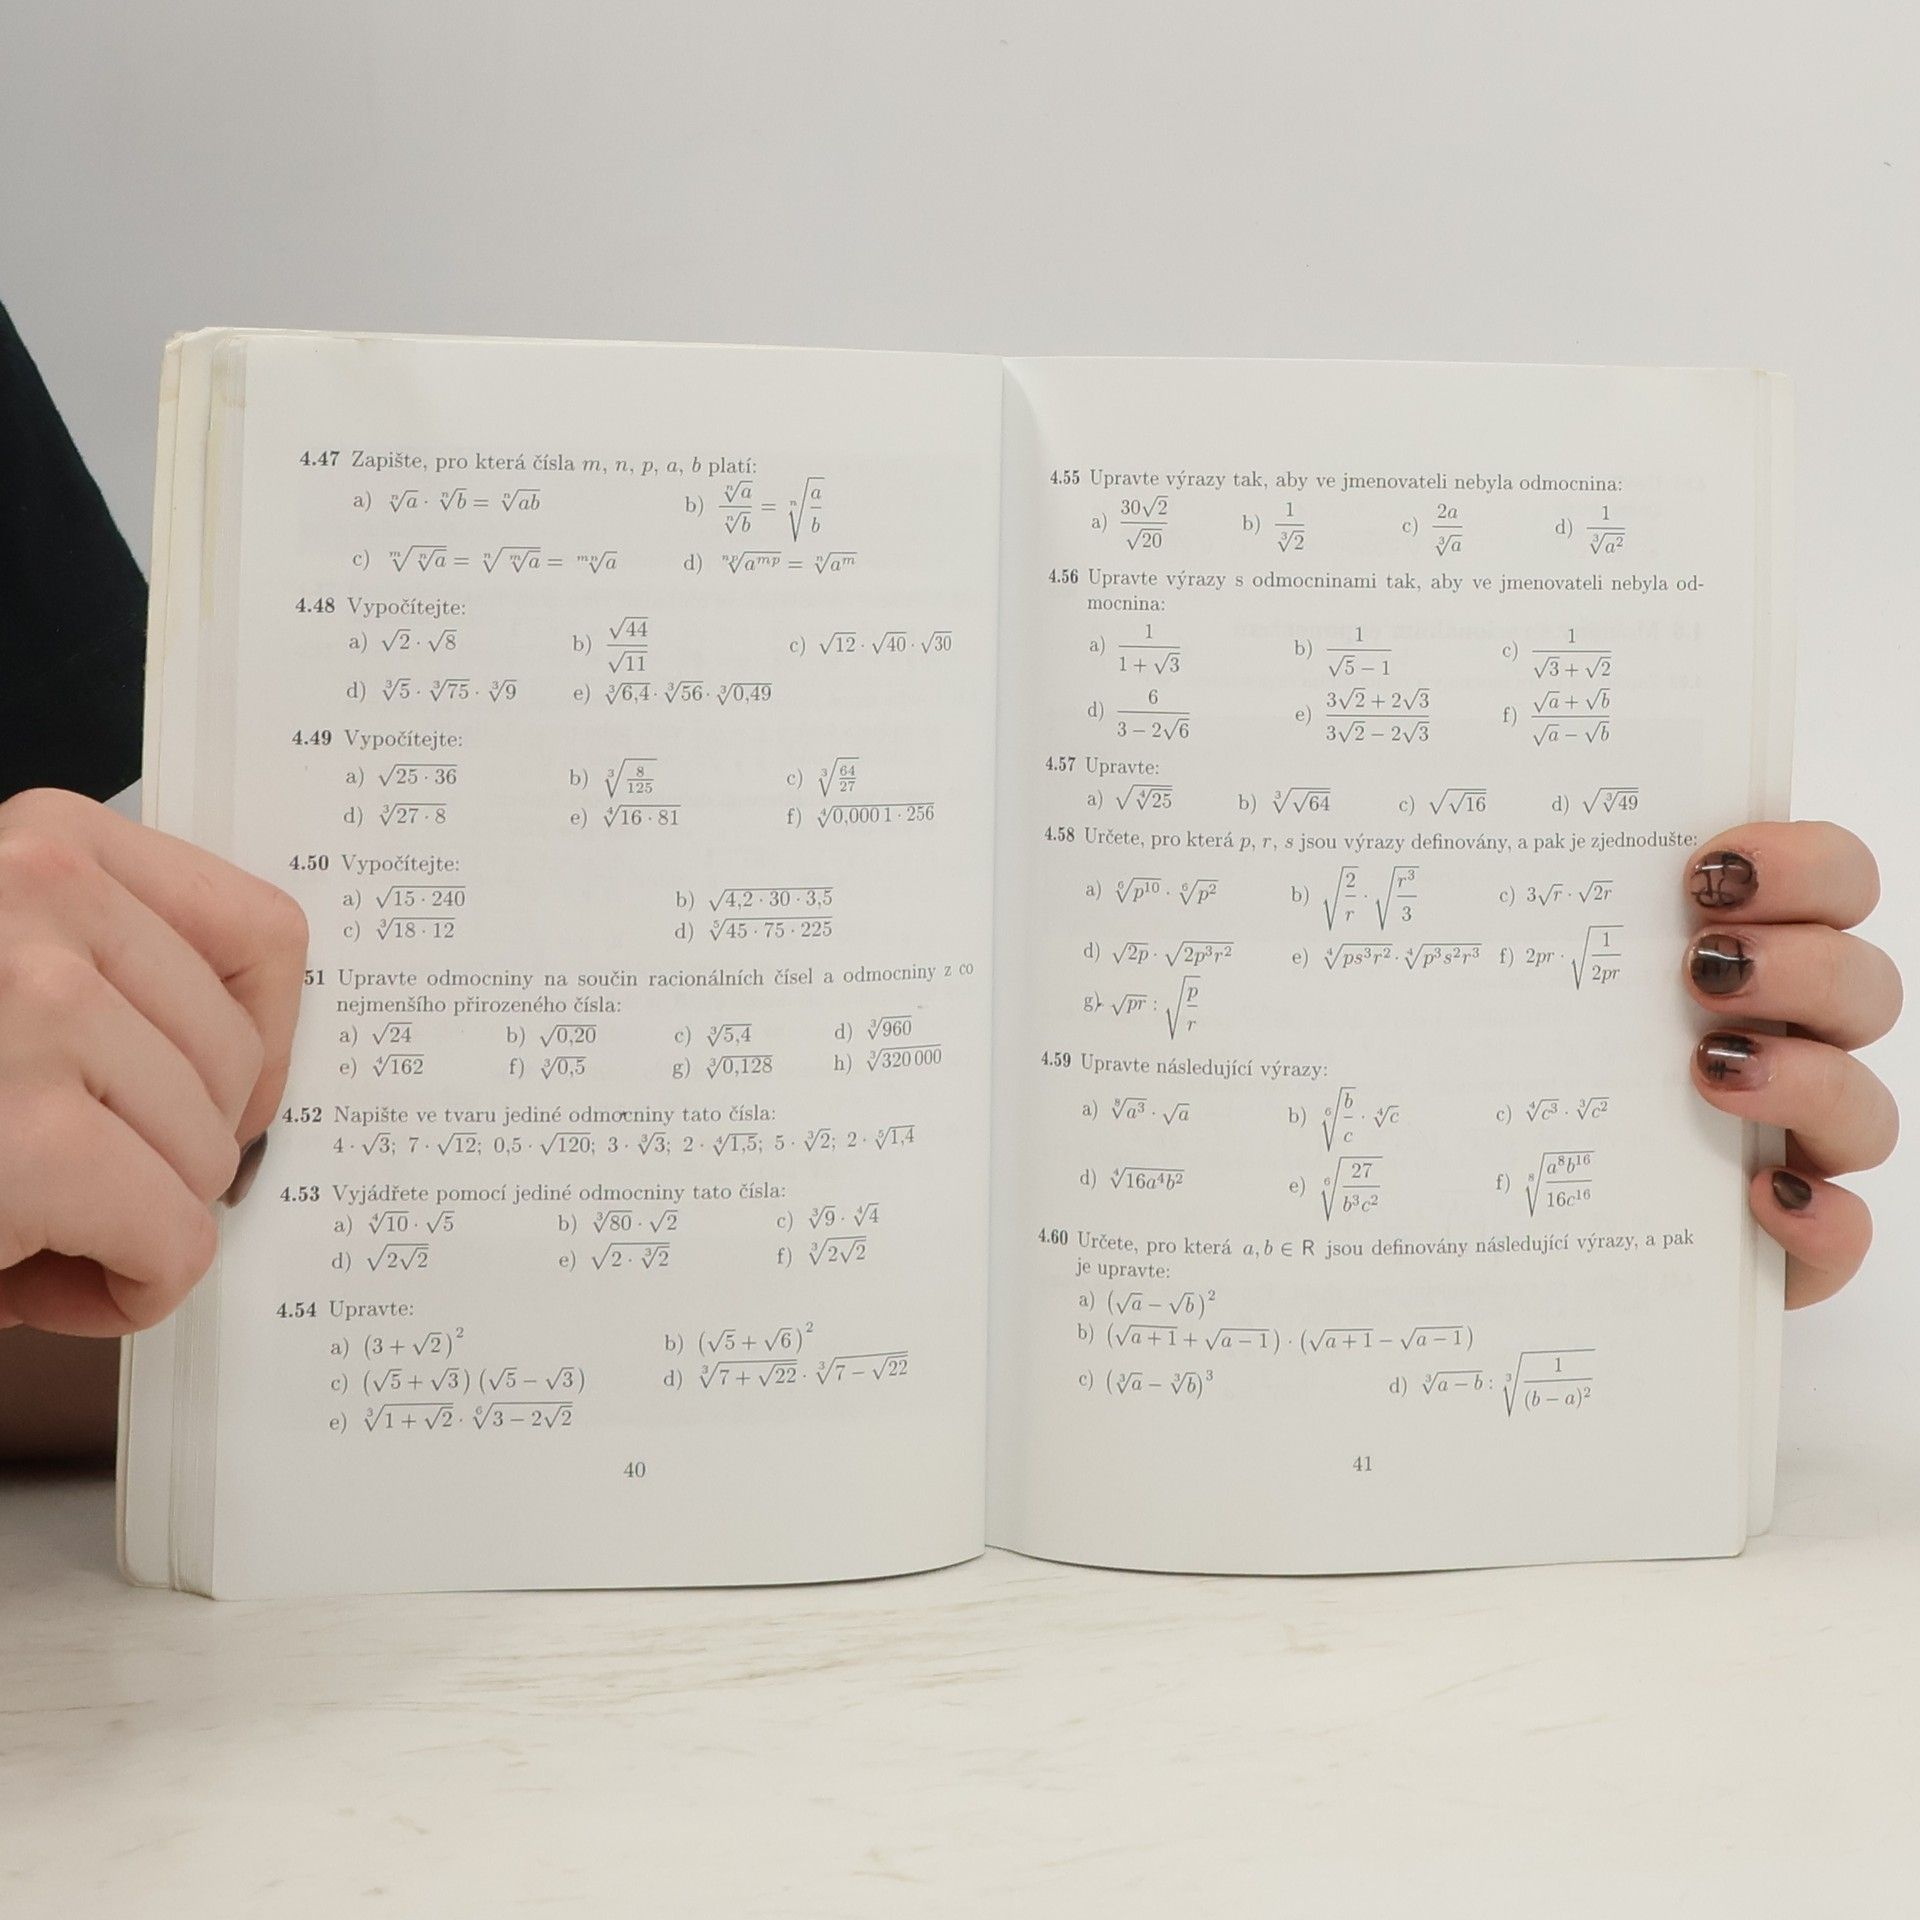 4.47 Zapište, pro která čísla m, n, p, a, b platí:
a) ⁿ√a · ⁿ√b = ⁿ√(ab) b) ⁿ√a / ⁿ√b = ⁿ√(a/b)
c) ᵐ√(ⁿ√a) = ⁿ√(ᵐ√a) = ᵐⁿ√a d) ⁿᵖ√(aᵐᵖ) = ⁿ√(aᵐ)
4.48 Vypočítejte:
a) √2 · √8 b) √44 / √11 c) √12 · √40 · √30
d) ³√5 · ³√75 · ³√9 e) ³√6,4 · ³√56 · ³√0,49
4.49 Vypočítejte:
a) √(25 · 36) b) ³√(8/125) c) ³√(64/27)
d) ³√(27 · 8) e) ⁴√(16 · 81) f) ⁴√(0,000 1 · 256)
4.50 Vypočítejte:
a) √(15 · 240) b) √(4,2 · 30 · 3,5)
c) ³√(18 · 12) d) ⁵√(45 · 75 · 225)
51 Upravte odmocniny na součin racionálních čísel a odmocniny z co
nejmenšího přirozeného čísla:
a) √24 b) √0,20 c) ³√5,4 d) ³√960
e) ⁴√162 f) ³√0,5 g) ³√0,128 h) ³√320 000
4.52 Napište ve tvaru jediné odmocniny tato čísla:
4 · √3; 7 · √12; 0,5 · √120; 3 · ³√3; 2 · ⁴√1,5; 5 · ³√2; 2 · ⁵√1,4
4.53 Vyjádřete pomocí jediné odmocniny tato čísla:
a) ⁴√10 · √5 b) ³√80 · √2 c) ³√9 · ⁴√4
d) √(2√2) e) √(2 · ³√2) f) ³√(2√2)
4.54 Upravte:
a) (3 + √2)² b) (√5 + √6)²
c) (√5 + √3) (√5 − √3) d) ³√(7 + √22) · ³√(7 − √22)
e) ³√(1 + √2) · ⁶√(3 − 2√2)
40
4.55 Upravte výrazy tak, aby ve jmenovateli nebyla odmocnina:
a) 30√2 / √20 b) 1 / ³√2 c) 2a / ³√a d) 1 / ³√(a²)
4.56 Upravte výrazy s odmocninami tak, aby ve jmenovateli nebyla od-
mocnina:
a) 1 / (1 + √3) b) 1 / (√5 − 1) c) 1 / (√3 + √2)
d) 6 / (3 − 2√6) e) (3√2 + 2√3) / (3√2 − 2√3) f) (√a + √b) / (√a − √b)
4.57 Upravte:
a) √(⁴√25) b) ³√(√64) c) √(√16) d) √(³√49)
4.58 Určete, pro která p, r, s jsou výrazy definovány, a pak je zjednodušte:
a) ⁶√(p¹⁰) · ⁶√(p²) b) √(2/r) · √(r³/3) c) 3√r · √(2r)
d) √(2p) · √(2p³r²) e) ⁴√(ps³r²) · ⁴√(p³s²r³) f) 2pr · √(1/(2pr))
g) √(pr) : √(p/r)
4.59 Upravte následující výrazy:
a) ⁸√(a³) · √a b) ⁶√(b/c) · ⁴√c c) ⁴√(c³) · ³√(c²)
d) ⁴√(16a⁴b²) e) ⁶√(27/(b³c²)) f) ⁸√(a⁸b¹⁶/(16c¹⁶))
4.60 Určete, pro která a, b ∈ R jsou definovány následující výrazy, a pak
je upravte:
a) (√a − √b)²
b) (√(a + 1) + √(a − 1)) · (√(a + 1) − √(a − 1))
c) (³√a − ³√b)³ d) ³√(a − b) : ³√(1/(b − a)²)
41